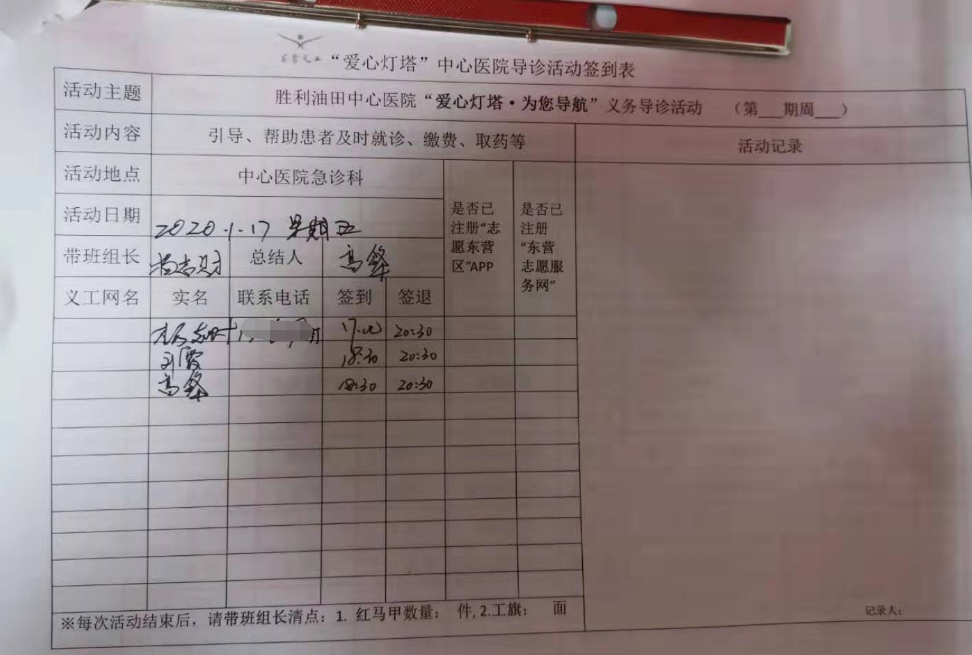 “爱心灯塔”中心医院导诊活动签到表
活动主题 胜利油田中心医院“爱心灯塔·为您导航”义务导诊活动 （第___期周___）
活动内容 引导、帮助患者及时就诊、缴费、取药等 活动记录
活动地点 中心医院急诊科
活动日期 2020.1.17 星期五
是否已注册“志愿东营区”APP
是否已注册“东营志愿服务网”
带班组长 总结人 高峰
义工网名 实名 联系电话 签到 签退
17:00 20:30
刘霞 18:30 20:30
高峰 18:30 20:30
※每次活动结束后，请带班组长清点：1. 红马甲数量： 件, 2.工旗： 面
记录人：